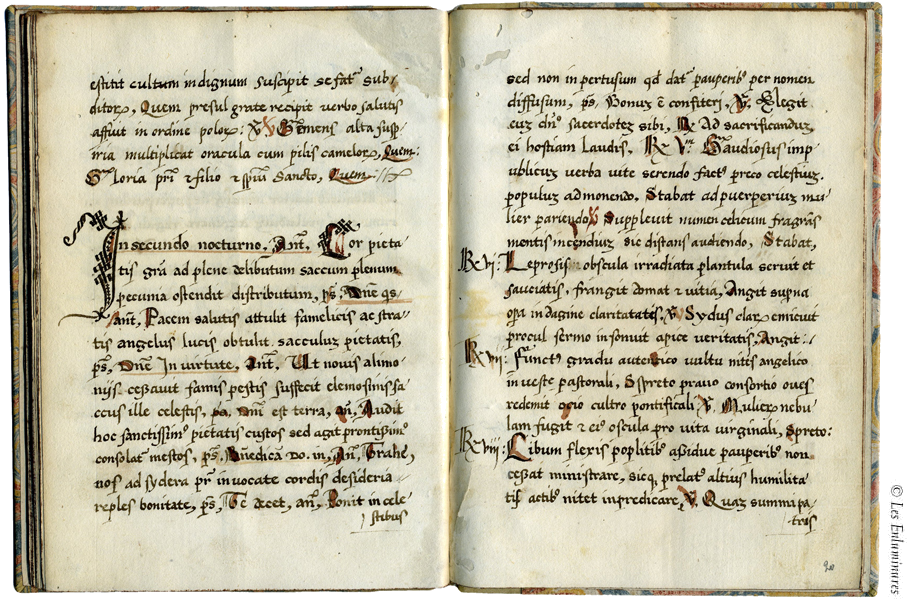 estitit cultum indignum suscipit se fat᷑ sub-
ditoꝝ, Quem presul grate recipit verbo salutis
affuit in ordine poloꝝ: ℣ Clemens alta susp-
iria multiplicat oracula cum pilis cameloꝝ, Quem:
Gloria pr̃i & filio & sp̃ui Sancto, Quem:
In secundo nocturno, Ant̃, Cor pieta-
tis gr̃a ad plene delibutum saccum plenum
pecunia ostendit distributum, ps̃, Dñe qs̃
Ant̃, Pacem salutis attulit famelicis ac stra-
tis angelus lucis obtulit sacculuz pietatis,
ps̃, Dñe In virtute, Ant̃, Ut novis alimo-
nijs cessauit famis pestis suffecit elemosinis sa-
ccus ille celestis, ps̃, Dñi est terra, añ, Audit
hoc sanctissim᷒ pietatis custos sed agit prontissim᷒
consolat᷑ mestos, ps̃, Bñedicã Do. in, Añ, Trahe,
nos ad sydera pr̃ inuocate cordis desideria
reples bonitate, ps̃, Te decet, añ, Ponit in cele
stibus
sed non in pertusum qđ dat᷑ pauperib᷒ per nomen
diffusum, ps̃, Bonuz ẽ confiteri, ℣, Elegit
euz dñ᷒ sacerdotez sibi, ℟ Ad sacrificanduz
ei hostiam laudis, ℟ Gaudiosius imp
ublicius verba vite serendo fact᷒ preco celestius.
populus admonendo, Stabat ad puerperiuz mu-
lier pariendo ℣ Suppleuit numen celicum fragrãs
mentis incendiuz sic distans audiendo, Stabat,
℟ vj: Leprosis obscula irradiata plantula seruit et
sauciatis, frangit domat & vitia, Angit supna
oꝑa indagine claritatis, ℣ Sydus claꝝ emicuit
procul sermo insonuit apice veritatis, Angit:
℟ vij: Funct᷒ gradu autentico vultu mitis angelico
in veste pastorali, Spreto prauo consortio oues
redemit ocio cultro pontificali ℣, Mulieꝝ nebu-
lam fugit & ei᷒ oscula pro vita virginali, Spreto:
℟ viij: Cibum flexis poplitib᷒ assidue pauperib᷒ non
cessat ministrare, sicq prelat᷒ altius humilita
tis actib᷒ nitet in predicare, ℣, Quaz summi pa-
tris
20
© Les Enluminures